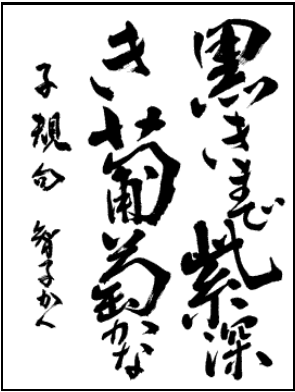 黒きまで紫深
き葡萄かな
子規句 智子かく